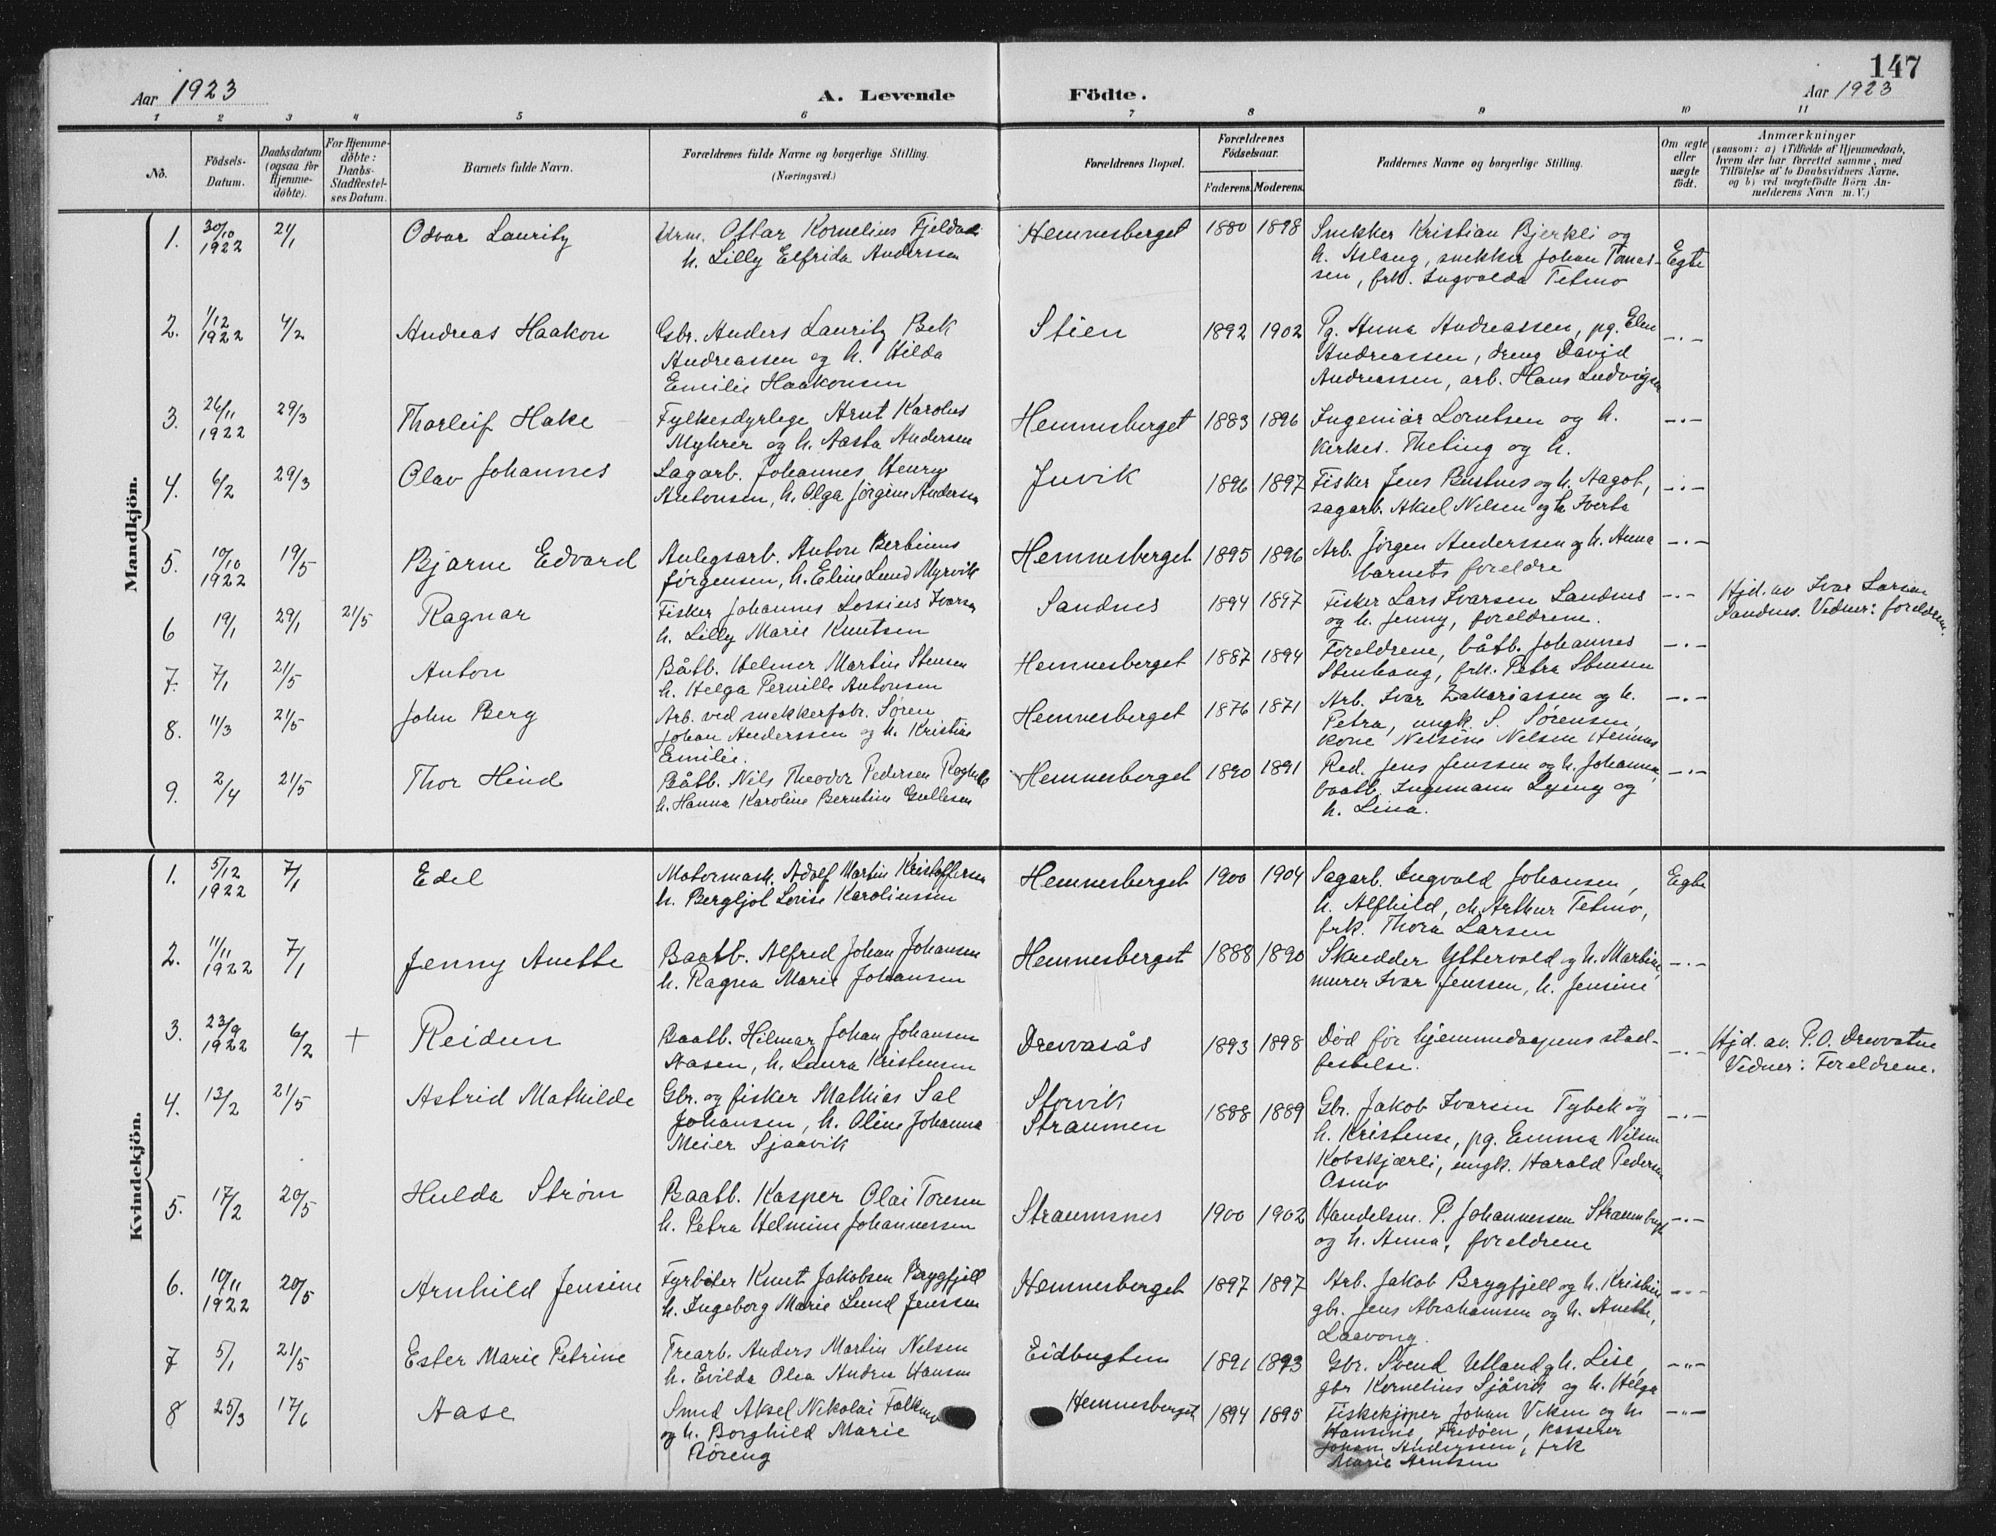 147
Aar 1923 A. Levende Födte. Aar 1923
1 2 3 4 5 6 7 8 9 10 11
No. Födsels-Datum. Daabsdatum (ogsaa for Hjemme-döbte). For Hjemme-döbte: Daabs-Stadfæstel-ses Datum. Barnets fulde Navn. Forældrenes fulde Navne og borgerlige Stilling. (Næringsvei.) Forældrenes Bopæl. Forældrenes Födselsaar. Faderens. Moderens. Faddernes Navne og borgerlige Stilling. Om ægte eller uægte födt. Anmærkninger (saasom: a) i Tilfælde af Hjemmedaab, hvem der har forrettet samme, med Tilföielse af to Daabsvidners Navne, og b) ved uægtefödte Börn An-melderens Navn m. V.)
Mandkjön.
1. 30/10 21/1 Odvar Lauritz Urm. Oftar Kornelius Fjeldvæ Hemnesberget 1880 1898 Snekker Kristian Bjerkli og
1922 h. Lilly Elfrida Anderssen h. Aslaug, snekker Johan Tomas- Egte
sen, frk. Ingvalda Tetmo
2. 1/12 4/2 Andreas Haakon Gbr. Anders Lauritz Bek Stien 1892 1902 Pg. Anna Andreassen, pg. Elen -.-
1922 Andreassen og h. Hilda Andreassen, dreng David
Emilie Haakonsen Andreassen, arb. Hans Ludvigsen
3. 26/11 29/3 Thorleif Hake Fylkesdyrlege Arnt Karolus Hemnesberget 1883 1896 Ingeniør Lorntsen og h. -.-
1922 Myhrer og h. Aasta Andersen kirkes. Theting og h.
4. 6/2 29/3 Olav Johannes Sagarb. Johannes Henry Juvik 1896 1897 Fisker Jens Bustnes og h. Aagot, -.-
Antonsen, h. Olga Jørgine Andersen sagarb. Aksel Nilsen og h. Iverta
5. 10/10 19/5 Bjarne Edvard Anlegsarb. Anton Berbinus Hemnesberget 1895 1896 Arb. Jørgen Anderssen og h. Anna -.-
1922 Jørgensen, h. Eline Lund Myrvik barnets foreldre
6 19/1 29/1 21/5 Ragnar Fisker Johannes Lossius Ivarsen Sandnes 1894 1897 Fisker Lars Ivarsen Sandnes -.- Hjd. av Ivar Larsen
h. Lilly Marie Knutsen og h. Jenny, foreldrene. Sandnes. Vidner: foreldrene.
7. 7/1 21/5 Anton Båtb. Helmer Martin Stensen Hemnesberget 1887 1894 Foreldrene, båtb. Johannes -.-
h. Helga Pernille Antonsen Stenhaug, frk. Petra Stensen
8. 11/3 21/5 John Berg Arb. ved snekkerfabr. Søren Hemnesberget 1876 1871 Arb. Ivar Zakariassen og h. -.-
Johan Anderssen og h. Kristine Petra, ungk. S. Sørensen,
Emilie. kone Nelsine Nelsen Hemnes
9. 2/4 21/5 Thor Hind Båtb. Nils Theodor Pedersen Hemnesberget 1890 1891 Red. Jens Jenssen og h. Johanna, -.-
h. Hanna Karoline Berntine Gullesen baatb. Ingemann Lyeng og
h. Lina.
Kvindekjön.
1. 5/12 7/1 Edel Motormask. Adolf Martin Kristoffersen Hemnesberget 1900 1904 Sagarb. Ingvald Johansen, Egte
1922 h. Bergljot Lovise Karolinssen h. Alfhild, Arthur Tetmo,
frk. Thora Larsen
2. 11/11 7/1 Jenny Anette Baatb. Alfred Johan Johansen Hemnesberget 1888 1890 Skredder Yttervold og h. Martine, -.-
1922 h. Ragna Marie Johansen murer Ivar Jenssen, h. Jensine
3. 23/9 6/2 + Reidun Baatb. Hilmar Johan Johansen Drevvasås 1893 1898 Død før hjemmedaapens stad- -.- Hjd. av. P.O. Drevvatne
1922 Aasen, h. Laura Kristensen festelse. Vidner: Foreldrene.
4. 13/2 21/5 Astrid Mathilde Gbr. og fisker Mathias Sal Storvik 1888 1889 Gbr. Jakob Ivarsen Tybek og -.-
Johansen, h. Oline Johanna Straumen h. Kristense, pg. Emma Nilsen
Meier Sjaavik Kobskjærli, ungk. Harald Pedersen
Osmo
5. 17/2 20/5 Hulda Strøm Baatb. Kasper Olai Toresen Straumsnes 1900 1902 Handelsm. P. Johannessen Straumbugt -.-
h. Petra Helmine Johannessen og h. Anna, foreldrene
6. 10/11 20/5 Arnhild Jensine Fyrbøter Knut Jakobsen Brygfjell Hemnesberget 1897 1897 Arb. Jakob Brygfjell og h. Kristine, -.-
1922 h. Ingeborg Marie Lund Jenssen gbr. Jens Abrahamsen og h. Anette,
Laavong.
7 5/1 21/5 Ester Marie Petrine Trearb. Anders Martin Nilsen Eidbugten 1891 1893 Gbr. Svend Utland og h. Lise, -"-
h. Evilda Olea Andrea Hansen gbr Kornelius Sjåvik og h. Helga
8 25/3 17/6 Aase Smed Aksel Nikolai Falkmo Hemnesberget 1894 1895 Fiskekjøper Johan Viken og h. -"-
og h. Borghild Marie Hansine, Fridøen, kasserer
Røreng Johan Anderssen, frk
Marie Arntsen